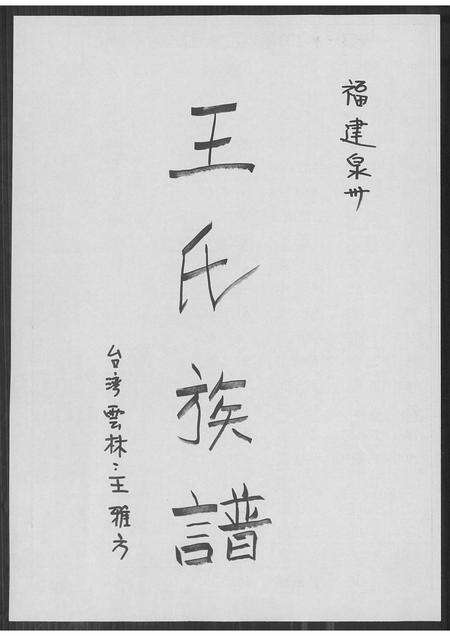 福建泉州
王氏族譜
台湾雲林:王雅方